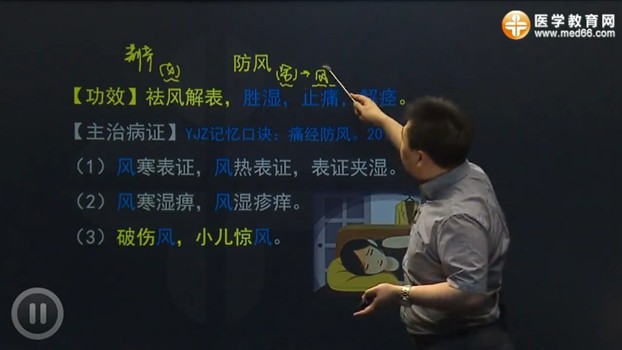 医学教育网
www.med66.com
荆芥
防风
【功效】祛风解表，胜湿，止痛，解痉。
【主治病证】YJZ记忆口诀：痛经防风。20
（1）风寒表证，风热表证，表证夹湿。
（2）风寒湿痹，风湿疹痒。
（3）破伤风，小儿惊风。